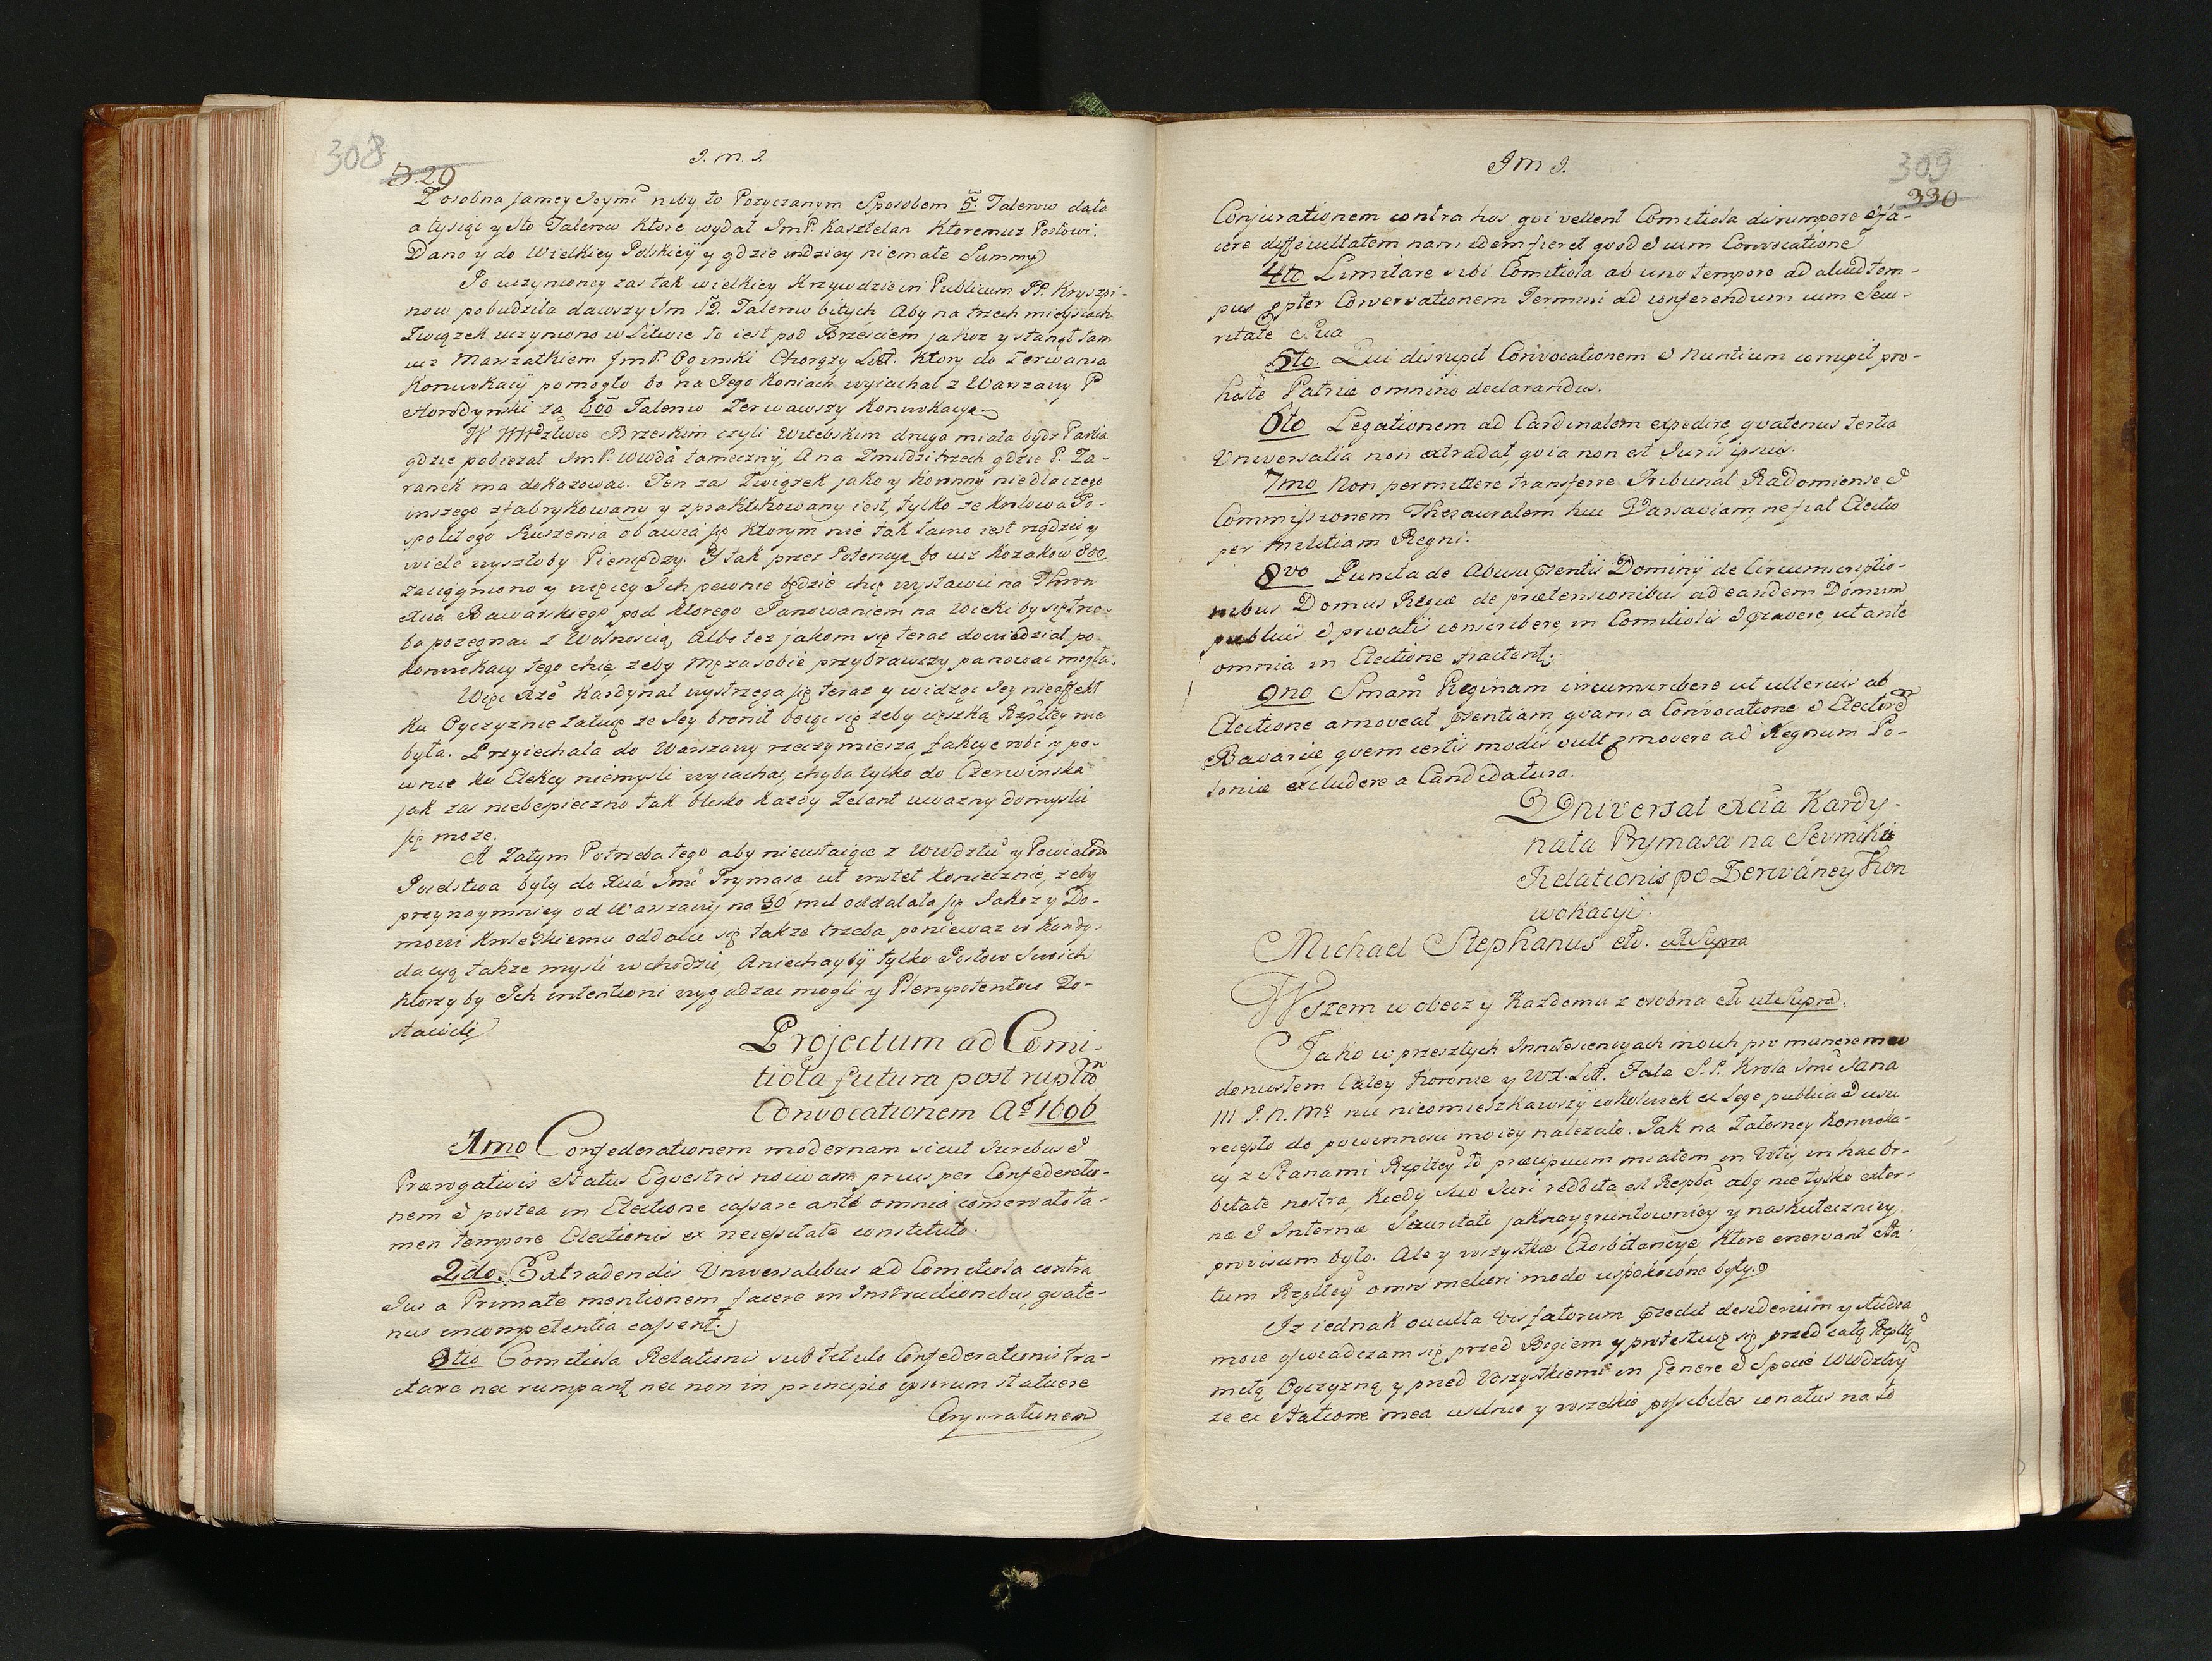 308
329
J. M. J.
Z osobna samey Jeymć niby to Pozyczanym Sposobem 5. Talerow dała
a tysiąc y sto Talerow ktore wydał JmP. Kasztelan Ktoremuz Posłowi.
Dano y do Wielkiey Polskieÿ y gdzie indziey niemałe Summy
Po uczynioney zas tak wielkiey Krzywdzie in Publicum PP. Kryszpi-
now pobudziła dawszy Im 12. Talerow bitych Aby na trzech mieyscach
Związek uczyniono w Litwie to iest pod Brzesciem jakoz y stanął tam
iuz Marszałkiem JmP. Oginski Chorązy Litt. Ktory do Zerwania
Konwokacÿi pomogło bo na Jego Koniach wyiachał z Warszawy P
Horodynski za 600 Talerow Zerwawszy Konwokacye.
W WWdztwie Brzeskim czyli Witebskim druga miała bydz Partia
gdzie pobiezał JmP. WWda tameczny, A na Zmudzi trzech gdzie P. Za-
ranek ma dokazowac. Ten zas Związek jako y Koronny niedlaczego
inszego zfabrykowany y zpraktikowany iest, tylko ze krolowa Po-
spolitego Ruszenia obawia się ktorym nie tak łacno iest rządzic, y
wiele wyszłoby Pieniędzy. Y tak przez Potencyę bo iuz Kozakow 800
zaciągniono y więcey Ich pewnie będzie chcę wystawic na Thron
Xcia Bawarskiego pod ktorego Panowaniem na Wieki by się trze-
ba pozegnac z Wolnoscią, Albo tez jakom się teraz dowiedział po
konwokacy tego chce, zeby Męza sobie przybrawszy panowac mogła.
Więc Xze Kardynał wystrzega się teraz y widząc Jey nieaffekt
ku Oyczyznie załuię ze Jey bronił boiąc się zeby cięszką Rzpltey nie
była. Przyiechała do Warszawy rzeczy miesza, fakcye robi y pe-
wnie ku Elekcy niemysli wyiachac, chyba tylko do Czerwinska
jak zas niebespieczno tak blisko kazdy Zelant uwazny domyslic
się moze.
A Zatym Potrzeba tego aby nieustaiąc z WWdztw y Powiatow
Poselstwa były do Xcia Jmci Prymasa ut instet koniecznie, zeby
przynaymniey od Warszawy na 30 mil oddalała się Jako y Do-
mowi Krolewskiemu oddalic się takze trzeba poniewaz w Kandy-
dacyą takze mysli wchodzic, Aniechayby tylko Posłow Swoich
ktorzy by Ich intentioni wygadzac mogli y Plenipotentow Zo-
stawili
Projectum ad Comi-
tiola futura post ruptam
Convocationem Ao 1696
1mo Confederationem modernam sicut Juribus et
Prærogativis Status Equestris nocivam prius per Confederatio-
nem et postea in Electione cassare ante omnia conservato ta-
men tempore Electionis ex necessitate constituto.
2do. Extradendis Universalibus ad Comitiola contra
Jus a Primate mentionem facere in Instructionibus, quate-
nus incompetentia cassent.
3tio Comitiola Relationis sub titulo Confederationis tra-
ctare nec rumpant nec non in principio ipsorum statuere
Conjurationem
J M J.
309
330
Conjurationem contra hos qui vellent Comitiola disrumpere et fa-
cere difficultatem nam idem fieret quod et cum Convocatione
4to Limitare sibi Comitiola ab uno tempore ad aliud tem-
pus propter Conservationem Termini ad conferendum cum Secu-
ritate Sua
5to. Qui disrupit Convocationem et Nuntium corrupit pro-
hoste Patriæ omnino declarandus.
6to Legationem ad Cardinalem expedire, quatenus tertia
Universalia non extradat, quia non est Juris ipsius.
7mo Non permittere transferre Tribunal Radomiense et
Commissionem Thesauralem huc Varsaviam, ne fiat Electio
per militiam Regni.
8vo Puncta de Abusu præsentis Dominÿ de Circumscriptio-
nibus Domus Regiæ de prætensionibus ad eandem Domum
publicis et privatis conscribere, in Comitiolis et præcavere, ut ante
omnia in Electione tractent.
9no Smam Reginam circumscribere ut ulterius ab
Electione amoveat præsentiam, quam a Convocatione et Electorem
Bavariæ, quem certis modis vult promovere ad Regnum Po-
loniæ excludere a Candidatura.
Uniwersał Xcia Kardy-
nała Prymasa na Seymiki
Relationis po Zerwáney Kon
wokacyi.
Michael Stephanus etc. ut Supra
Wszem w obecz y Kazdemu z osobna etc ut Supra.
Jako w przeszłych Innotescencyach moich pro munere meo
doniosłem Całey Koronie y W.X. Litt. Fata S.P. Krola Jmci Jana
III P. N. Mo nic nieomieszkawszÿ cokolwiek ex Lege publica et usu
recepto do powinnosci moiey nalezało. Tak na Załosney Konwoka-
cy z Stanami Rzpltey to præcipuum miałem in Votis, in hac Or-
bitate nostra, kiedy suo Juri reddita est Respba, aby nie tylko exter-
næ et Internæ Securitati jaknaygruntowniey y naskuteczniey
provisum było. Ale y wszystkie Exorbitancye, ktore enervant Sta-
tum Rzpltey omni meliori modo uspokoione były.
Iz iednak occulta vis fatorum præcedit desiderium y studia
moie oswiadczam się przed Bogiem y protestuię się przed całą Rzpltą
miłą Oyczyzną y przed Wszystkiemi in Genere et Specie WWdztwy
ze ex Statione mea usilne y wszelkie possibiles conatus na to